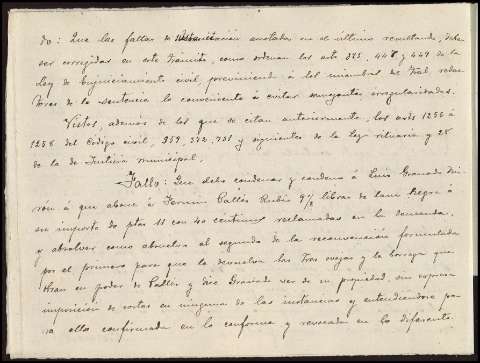 do: Que las faltas de sustanciación anotadas en el último resultando, deben
ser corregidas en este trámite, como ordenan los arts 375, 447 y 449 de la
Ley de Enjuiciamiento civil previniendo á los miembros del Tral. redac
tores de la sentencia lo conveniente á evitar semejantes irregularidades.
Vistos, además de los que se citan anteriormente, los arts 1256 á
1258 del Código civil, 359, 372, 731 y siguientes de la Ley rituaria y 28
de la de Justicia municipal,
Fallo: Que debo condenar y condeno á Luis Granado
á que abone á Fermin Pallás Rubio 9½ libras de lana negra ó
su importe de ptas 11 con 40 céntimos reclamadas en la demanda,
y absolver como absuelvo al segundo de la reconvención formulada
por el primero para que le devuelva las tres ovejas y la borrega que
obran en poder de Pallás y dice Granado ser de su propiedad, sin expresa
imposición de costas en ninguna de las instancias y entendiendose pa
ra ello confirmada en lo conforme y revocada en lo diferente